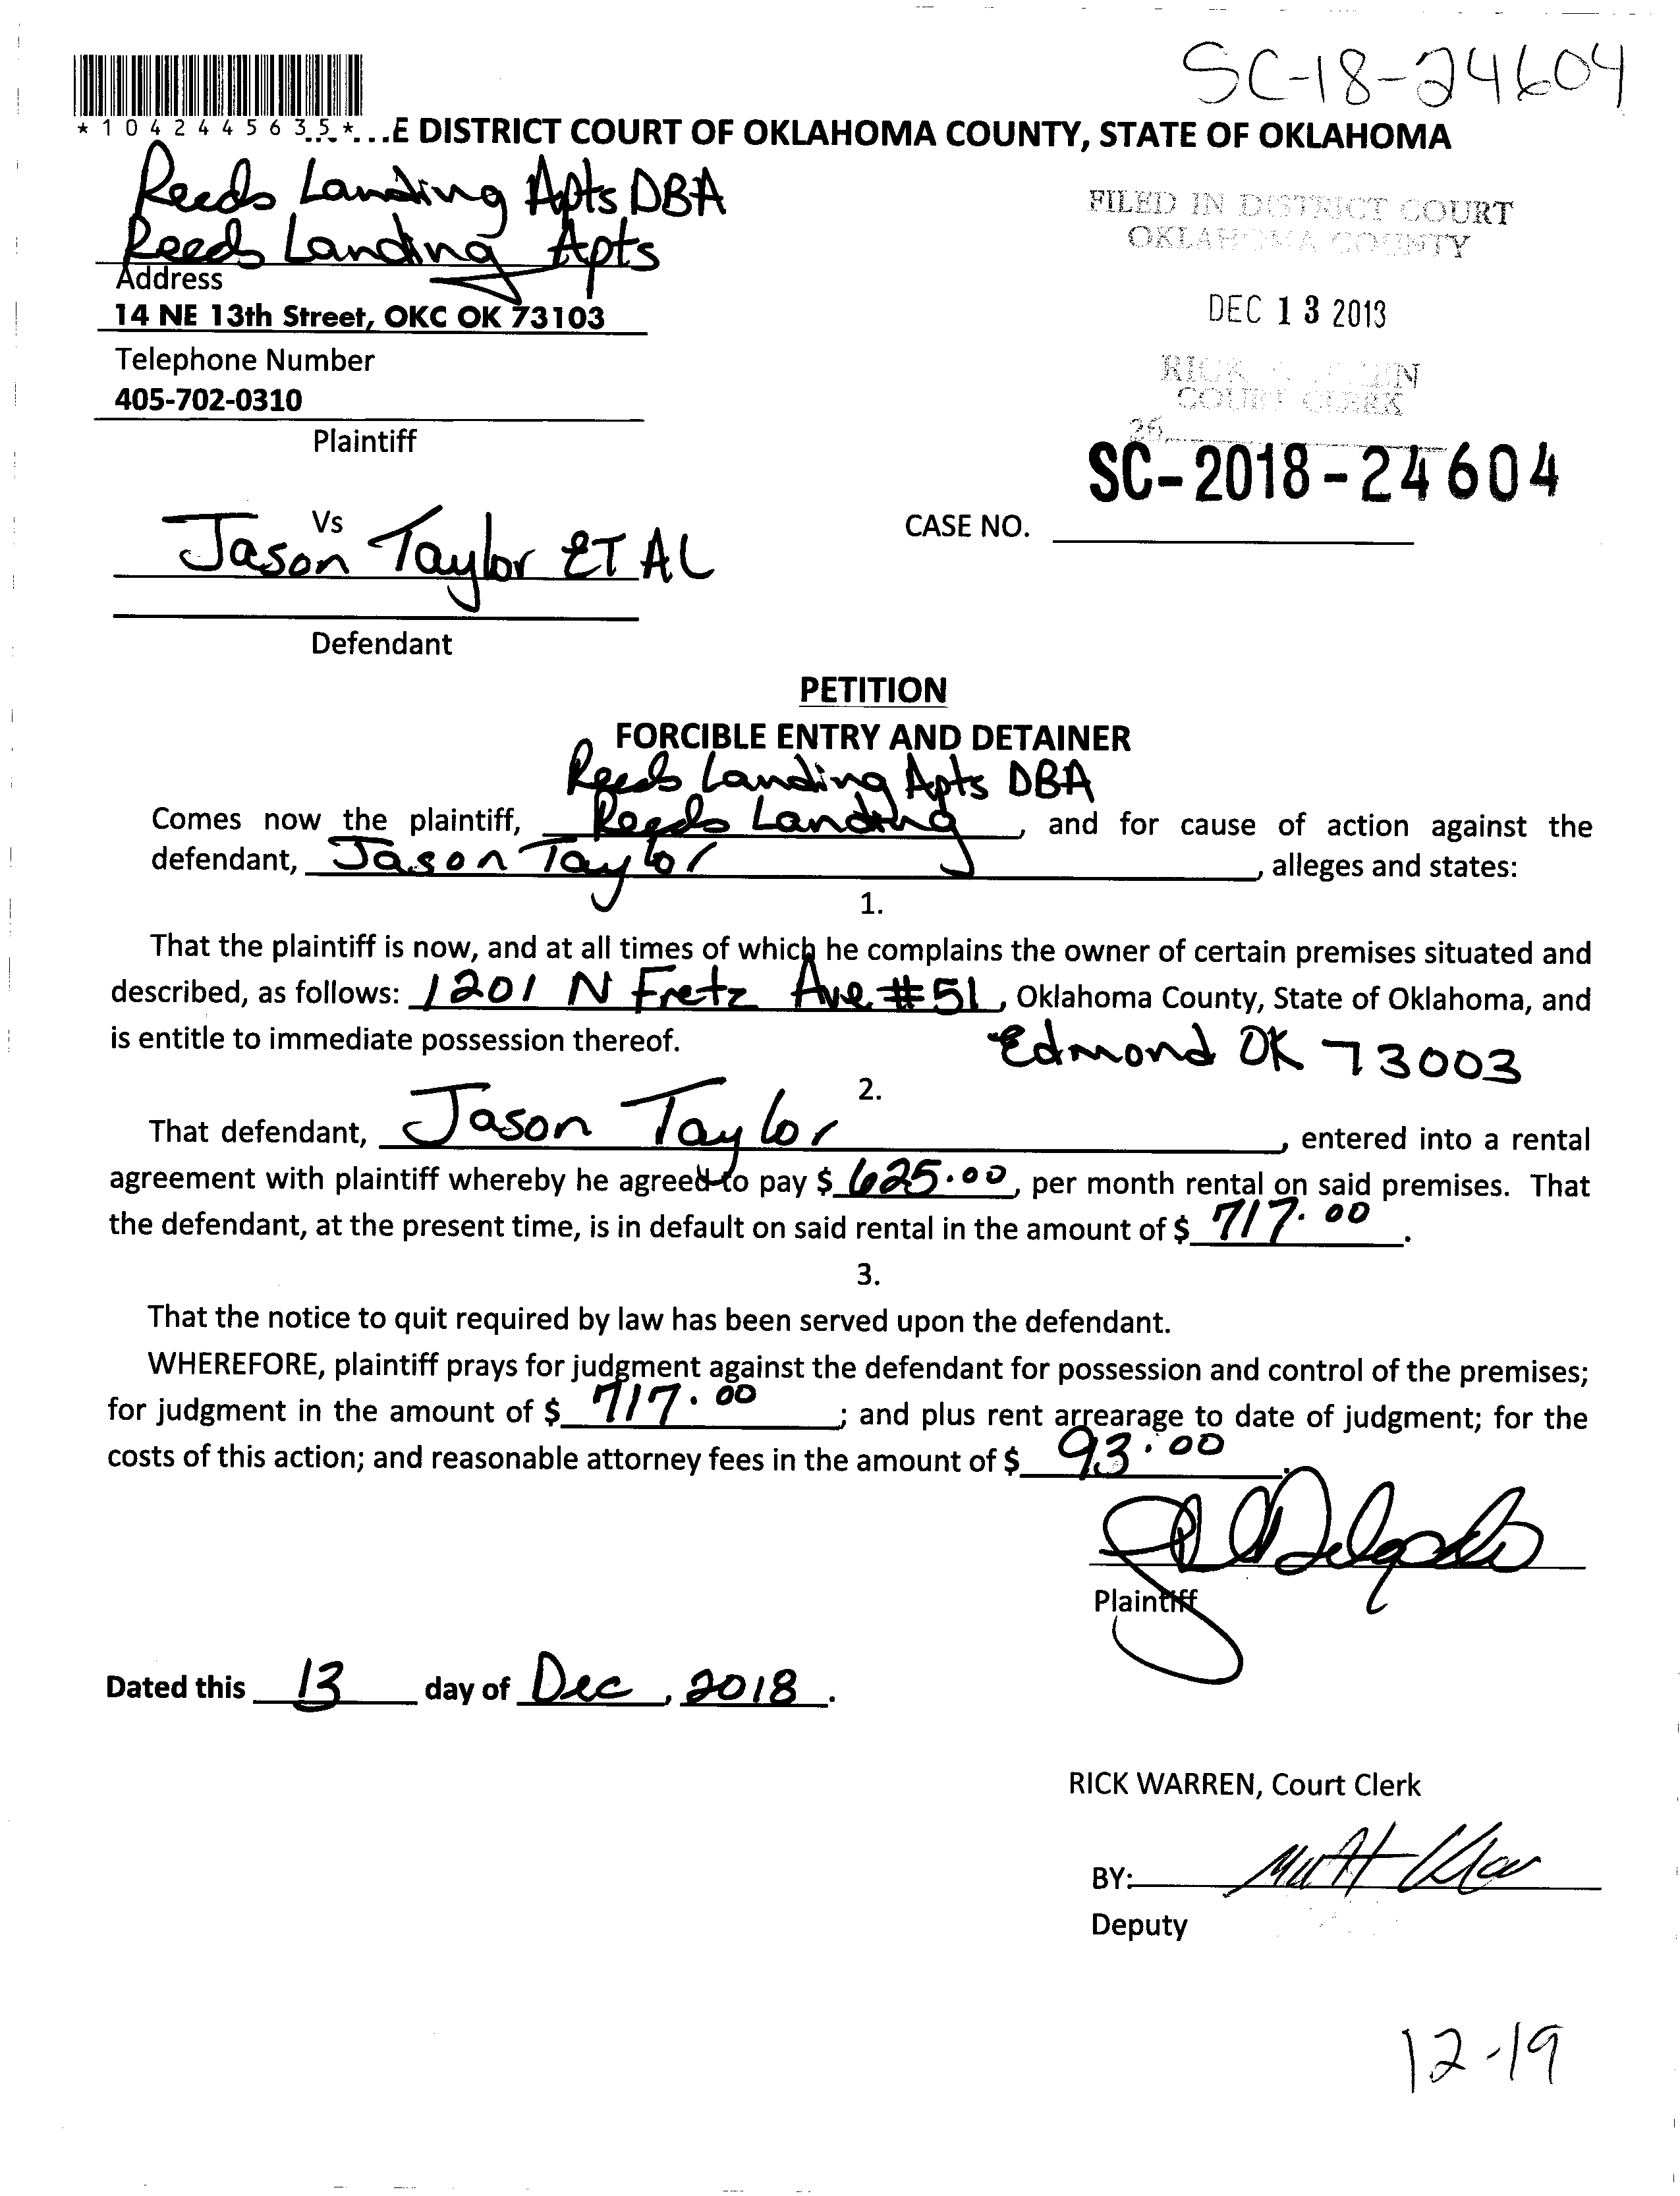 SC-18-24604
*1042445635*
...E DISTRICT COURT OF OKLAHOMA COUNTY, STATE OF OKLAHOMA
Reeds Landing Apts DBA
Reeds Landing Apts
Address
14 NE 13th Street, OKC OK 73103
Telephone Number
405-702-0310
Plaintiff
FILED IN DISTRICT COURT
OKLAHOMA COUNTY
DEC 13 2018
COURT CLERK
26
SC-2018-24604
CASE NO.
Vs
Jason Taylor ET AL
Defendant
PETITION
FORCIBLE ENTRY AND DETAINER
Reeds Landing Apts DBA
Comes now the plaintiff, Reeds Landing, and for cause of action against the
defendant, Jason Taylor, alleges and states:
1.
That the plaintiff is now, and at all times of which he complains the owner of certain premises situated and
described, as follows: 1201 N Fretz Ave #51, Oklahoma County, State of Oklahoma, and
is entitle to immediate possession thereof. Edmond OK 73003
2.
That defendant, Jason Taylor, entered into a rental
agreement with plaintiff whereby he agreed to pay $ 625.00, per month rental on said premises. That
the defendant, at the present time, is in default on said rental in the amount of $ 717.00.
3.
That the notice to quit required by law has been served upon the defendant.
WHEREFORE, plaintiff prays for judgment against the defendant for possession and control of the premises;
for judgment in the amount of $ 717.00; and plus rent arrearage to date of judgment; for the
costs of this action; and reasonable attorney fees in the amount of $ 93.00.
Delgado
Plaintiff
Dated this 13 day of Dec, 2018.
RICK WARREN, Court Clerk
BY: Matt
Deputy
12-19